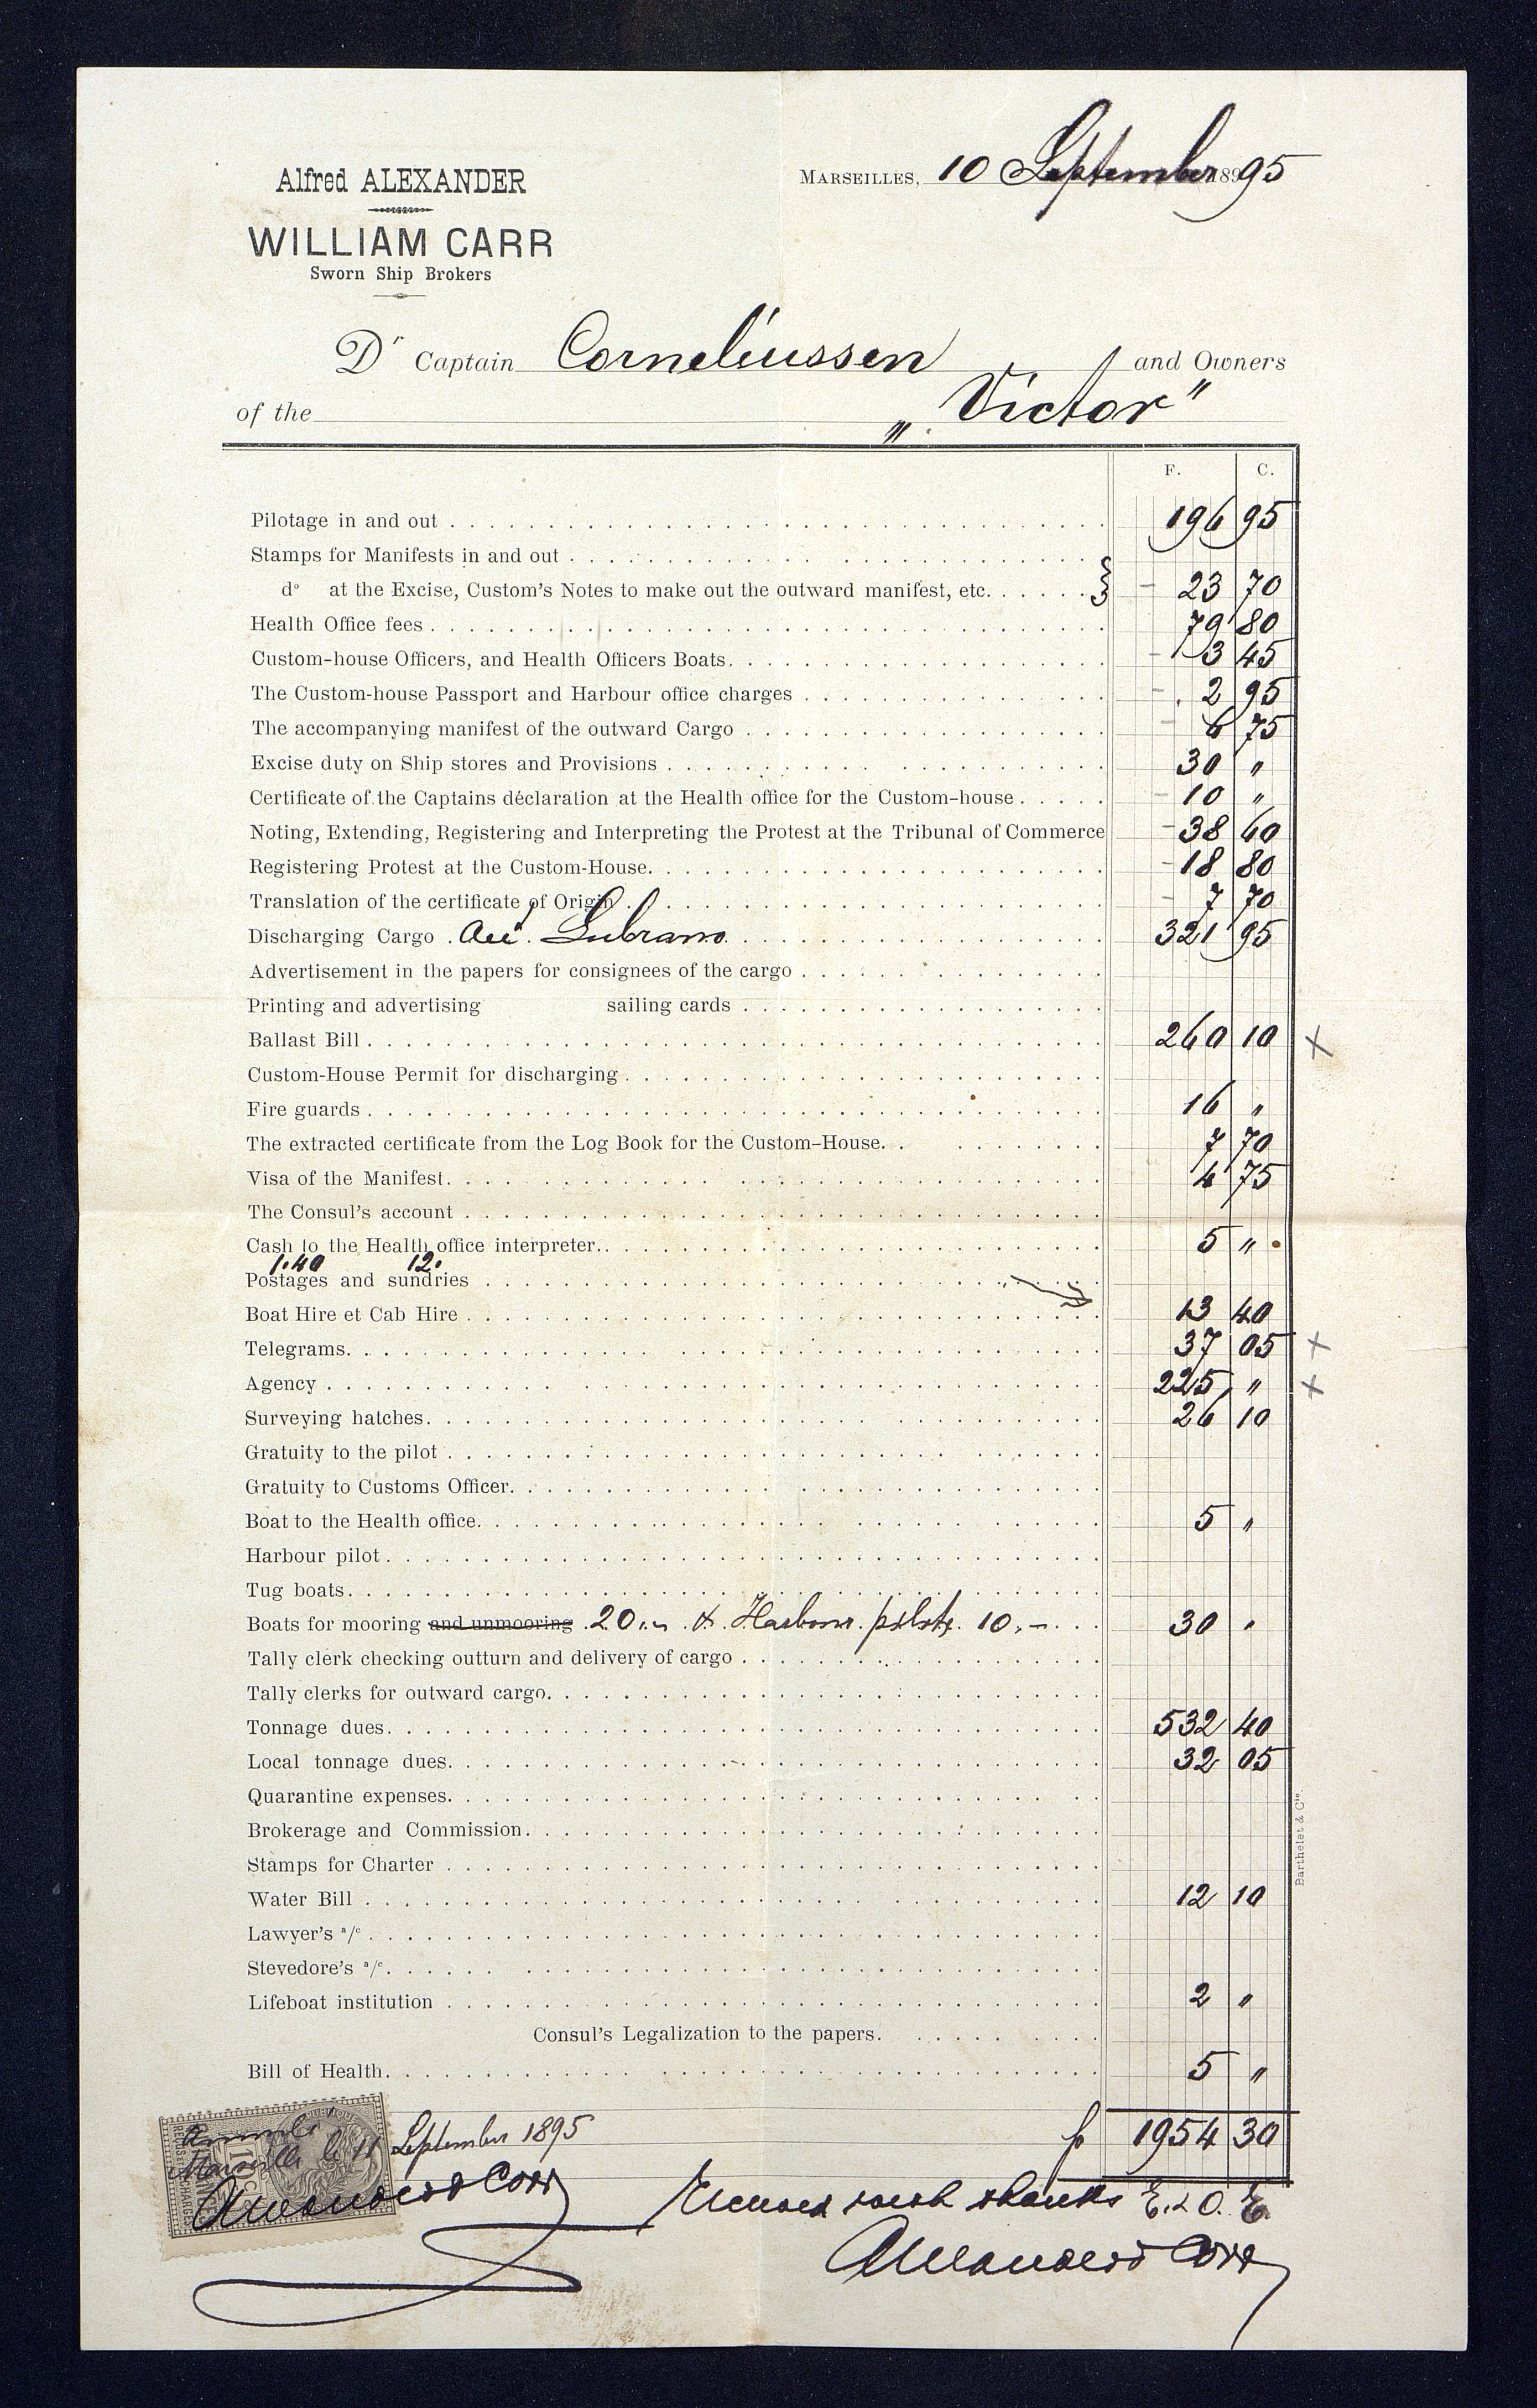 Alfred ALEXANDER
WILLIAM CARR
Sworn Ship Brokers
MARSEILLES, 10 September 18995
Dr Captain Corneliussen and Owners
of the „Victor”
F. C.
Pilotage in and out 196 95
Stamps for Manifests in and out
do at the Excise, Custom's Notes to make out the outward manifest, etc. 23 70
Health Office fees 79 80
Custom-house Officers, and Health Officers Boats. 3 45
The Custom-house Passport and Harbour office charges 2 95
The accompanying manifest of the outward Cargo 6 75
Excise duty on Ship stores and Provisions 30 "
Certificate of the Captains déclaration at the Health office for the Custom-house 10 "
Noting, Extending, Registering and Interpreting the Protest at the Tribunal of Commerce 38 60
Registering Protest at the Custom-House. 18 80
Translation of the certificate of Origin 7 70
Discharging Cargo Lubrano 321 95
Advertisement in the papers for consignees of the cargo
Printing and advertising sailing cards
Ballast Bill 260 10 x
Custom-House Permit for discharging
Fire guards 16 "
The extracted certificate from the Log Book for the Custom-House. 7 70
Visa of the Manifest. 4 75
The Consul's account
Cash to the Health office interpreter. 5 "
1.40 12.
Postages and sundries
Boat Hire et Cab Hire 13 40
Telegrams. 37 05 x
Agency 225 " x
Surveying hatches. 26 10
Gratuity to the pilot
Gratuity to Customs Officer.
Boat to the Health office. 5 "
Harbour pilot
Tug boats.
Boats for mooring and unmooring 20.- & Harbour pilots 10.- 30 "
Tally clerk checking outturn and delivery of cargo
Tally clerks for outward cargo.
Tonnage dues. 532 40
Local tonnage dues. 32 05
Quarantine expenses.
Brokerage and Commission.
Stamps for Charter
Water Bill 12 10
Lawyer's a/c
Stevedore's a/c
Lifeboat institution 2 "
Consul's Legalization to the papers.
Bill of Health. 5 "
f 1954 30
Marseille le 11 September 1895
E. & O. E.
Alexander & Carr
Alexander & Carr
Barthelet & Cie.